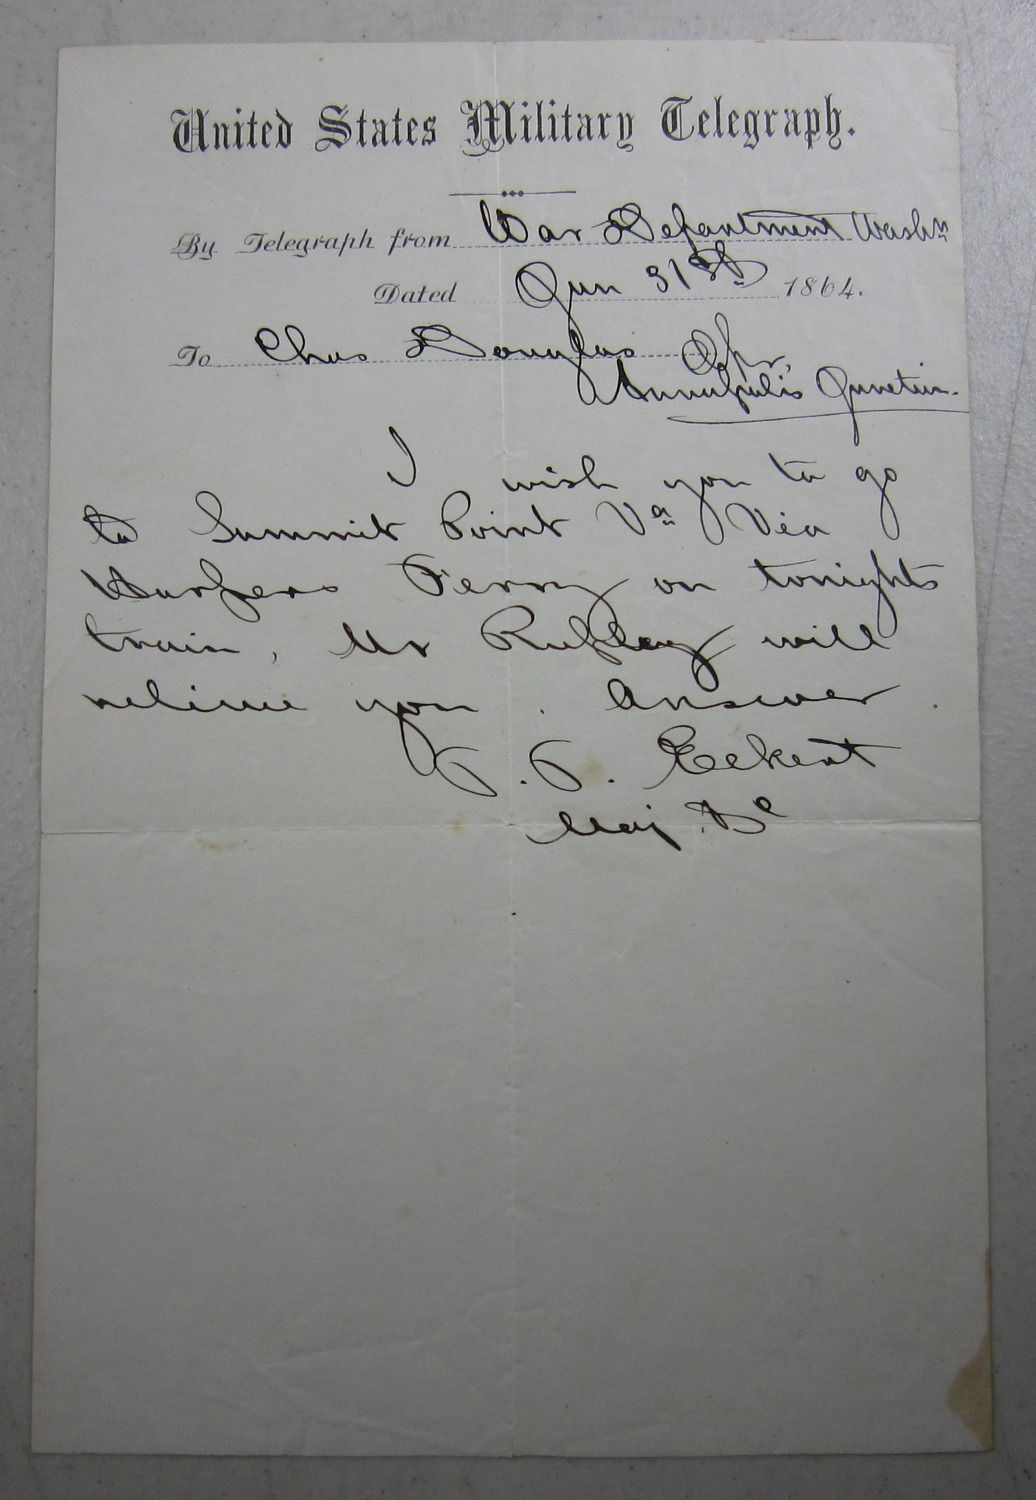 United States Military Telegraph.
By Telegraph from War Department Washn
Dated Jan 31st 1864.
To Chas Douglas Opr,
Annapolis Junction.
I wish you to go
to Summit Point Va Via
Harpers Ferry on tonights
train, Mr Rupley will
relieve you. Answer.
T. T. Eckert
Maj.